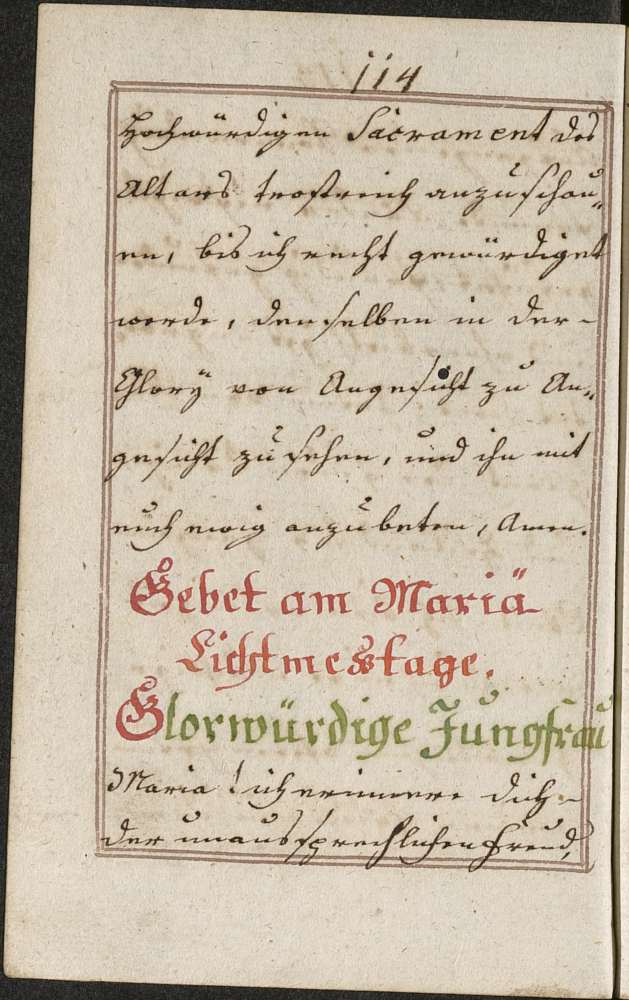 114
Hochwürdigen Sacrament des
Altars trostreich anzuschau„
en, bis ich recht gewürdiget
werde, denselben in der
Glory von Angesicht zu An„
gesicht zu sehen, und ihn mit
euch ewig anzubeten, Amen.
Gebet am Mariä
Lichtmesstage.
Glorwürdige Jungfrau
Maria! ich erinnere dich
der unaussprechlichen Freud,